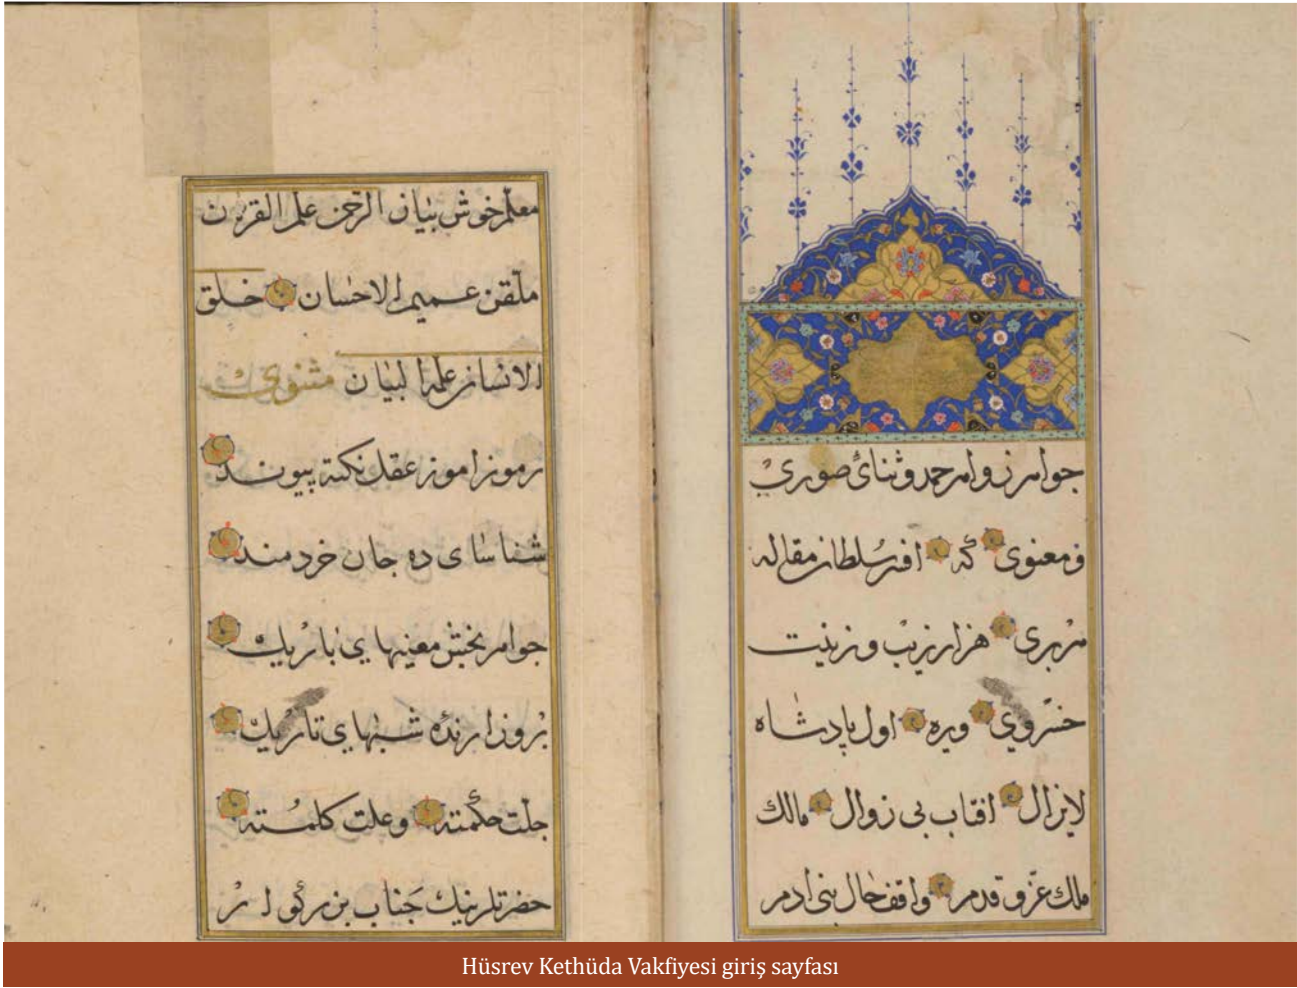 جواهر زواهر حمد و ثنائ صوری
و معنوی که افسر سلطان مقاله
هزار زیب و زینت
خسروی ویره اول پادشاه
لایزال افتاب بی زوال مالك
ملك عز و قدم واقف حال بنی ادم
معلم خوش بیان الرحمن علم القرآن
ملقن عمیم الاحسان خلق
الانسان علمه البیان مثنوی
رموز اموز عقل نکته پیوند
شناسای ده جان خردمند
جواهر بخش معنیهای باریك
بروز ارنده شبهای تاریك
جلت حکمته و علت کلمته
حضرتلرینك جناب بزرکوار
Hüsrev Kethüda Vakfiyesi giriş sayfası